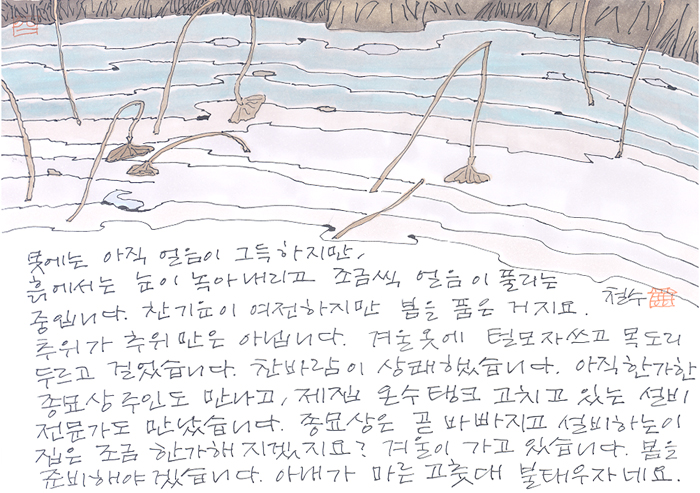 못에는 아직 얼음이 그득하지만,
흙에서는 눈이 녹아내리고 조금씩 얼음이 풀리는
중입니다. 찬기운이 여전하지만 봄을 품은 거지요. 철수
추위가 추위만은 아닙니다. 겨울옷에 털모자쓰고 목도리
두르고 걸었습니다. 찬바람이 상쾌했습니다. 아직한가한
종묘상주인도 만나고, 제재소 온수탱크 고치고 있는 설비
전문가도 만났습니다. 종묘상은 곧 바빠지고 설비하는이
집은 조금 한가해지겠지요? 겨울이 가고 있습니다. 봄을
준비해야겠습니다. 아내가 마른 고춧대 불태우자네요.